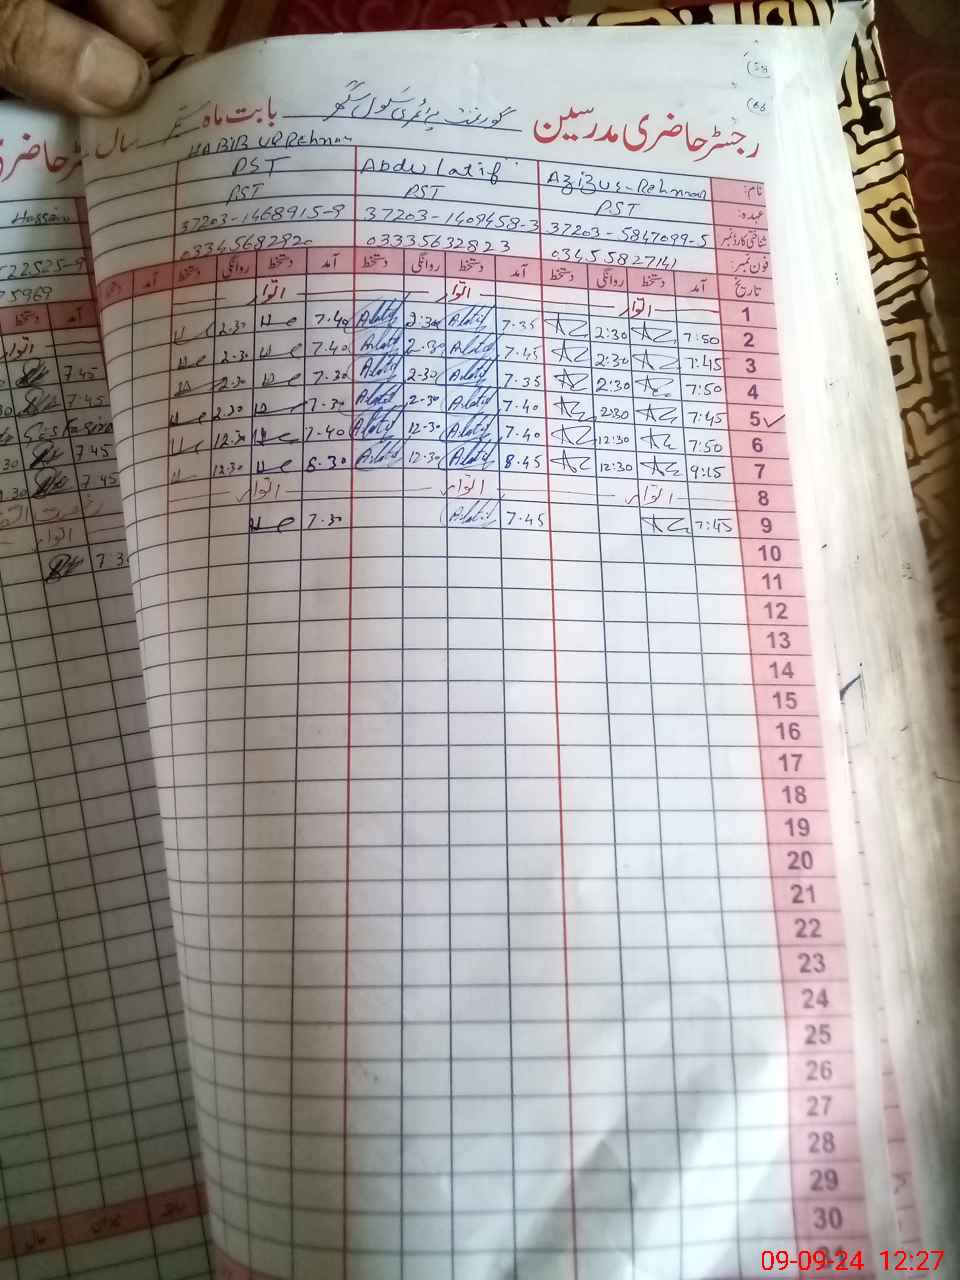 رجسٹر حاضری مدرسین گورنمنٹ پرائمری سکول بابت ماہ ستمبر سال
نام: Azizus-Rehman Abdul Latif HABIB UR Rehman
عہدہ: PST PST PST
PST
شناختی کارڈ نمبر 37203-5847099-5 37203-1409458-3 37203-1468915-9
فون نمبر: 03455827141 03335632823 03345682920
تاریخ آمد دستخط روانگی دستخط آمد دستخط روانگی دستخط آمد دستخط روانگی دستخط آمد
1 اتوار اتوار اتوار
2 7:50 2:30 7.35 A.latif 2:30 A.latif 7.40 2.30
3 7:45 2:30 7.45 A.latif 2.30 A.latif 7.40 2.30
4 7:50 2:30 7.35 A.latif 2.30 A.latif 7.30 2.30
5 7:45 2:30 7.40 A.latif 2.30 A.latif 7.30 2.30
6 7:50 12:30 7.40 A.latif 12.30 A.latif 7.40 12.30
7 9:15 12:30 8.45 A.latif 12.30 A.latif 8.30 12.30
8 اتوار اتوار اتوار
9 7:45 7.45 A.latif 7.30
10
11
12
13
14
15
16
17
18
19
20
21
22
23
24
25
26
27
28
29
30
حاضری
Hassain
22525-9
5969
آمد دستخط
اتوار
7.45
7.45
7.45
7.45
اتوار
7.3
09-09-24 12:27